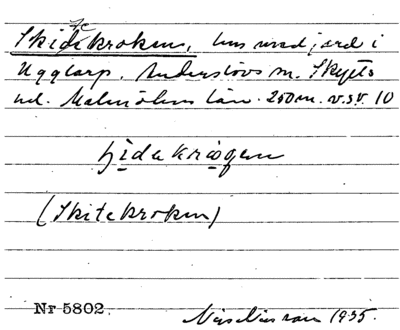 te
Skidekroken, hus med jord i
Ugglarp, Anderslövs sn. Skytts
hd. Malmöhus län. 250 m. v.s.v. 10
hidekrogen
(Skitekroken)
Nr 5802. Nils Nilsson 1935.